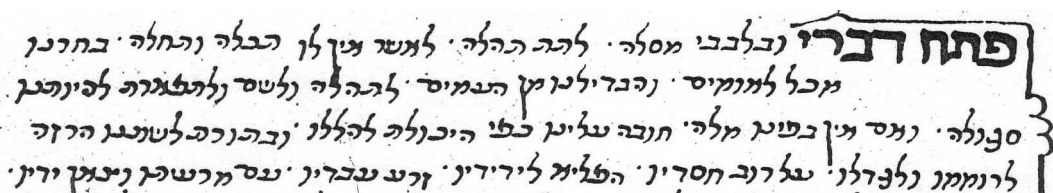 פתח דברי ובלבבי מסלה · לתת תהלה · לאשר אין לו תכלה ותחלה · בחרנו
מכל לאומים · והבדילנו מן העמים · לתהלה ולשם ולתפארת להיותנו
סגולה · ואם אין בפינו מלה · חובה עלינו כפי היכולת להללו · ובתורת לשוננו הרזה
לרוממו ולגדלו · על רוב חסדיו · הפליא לידידיו · זרע עבדיו · עם מרעיתו וצאן ידיו ·